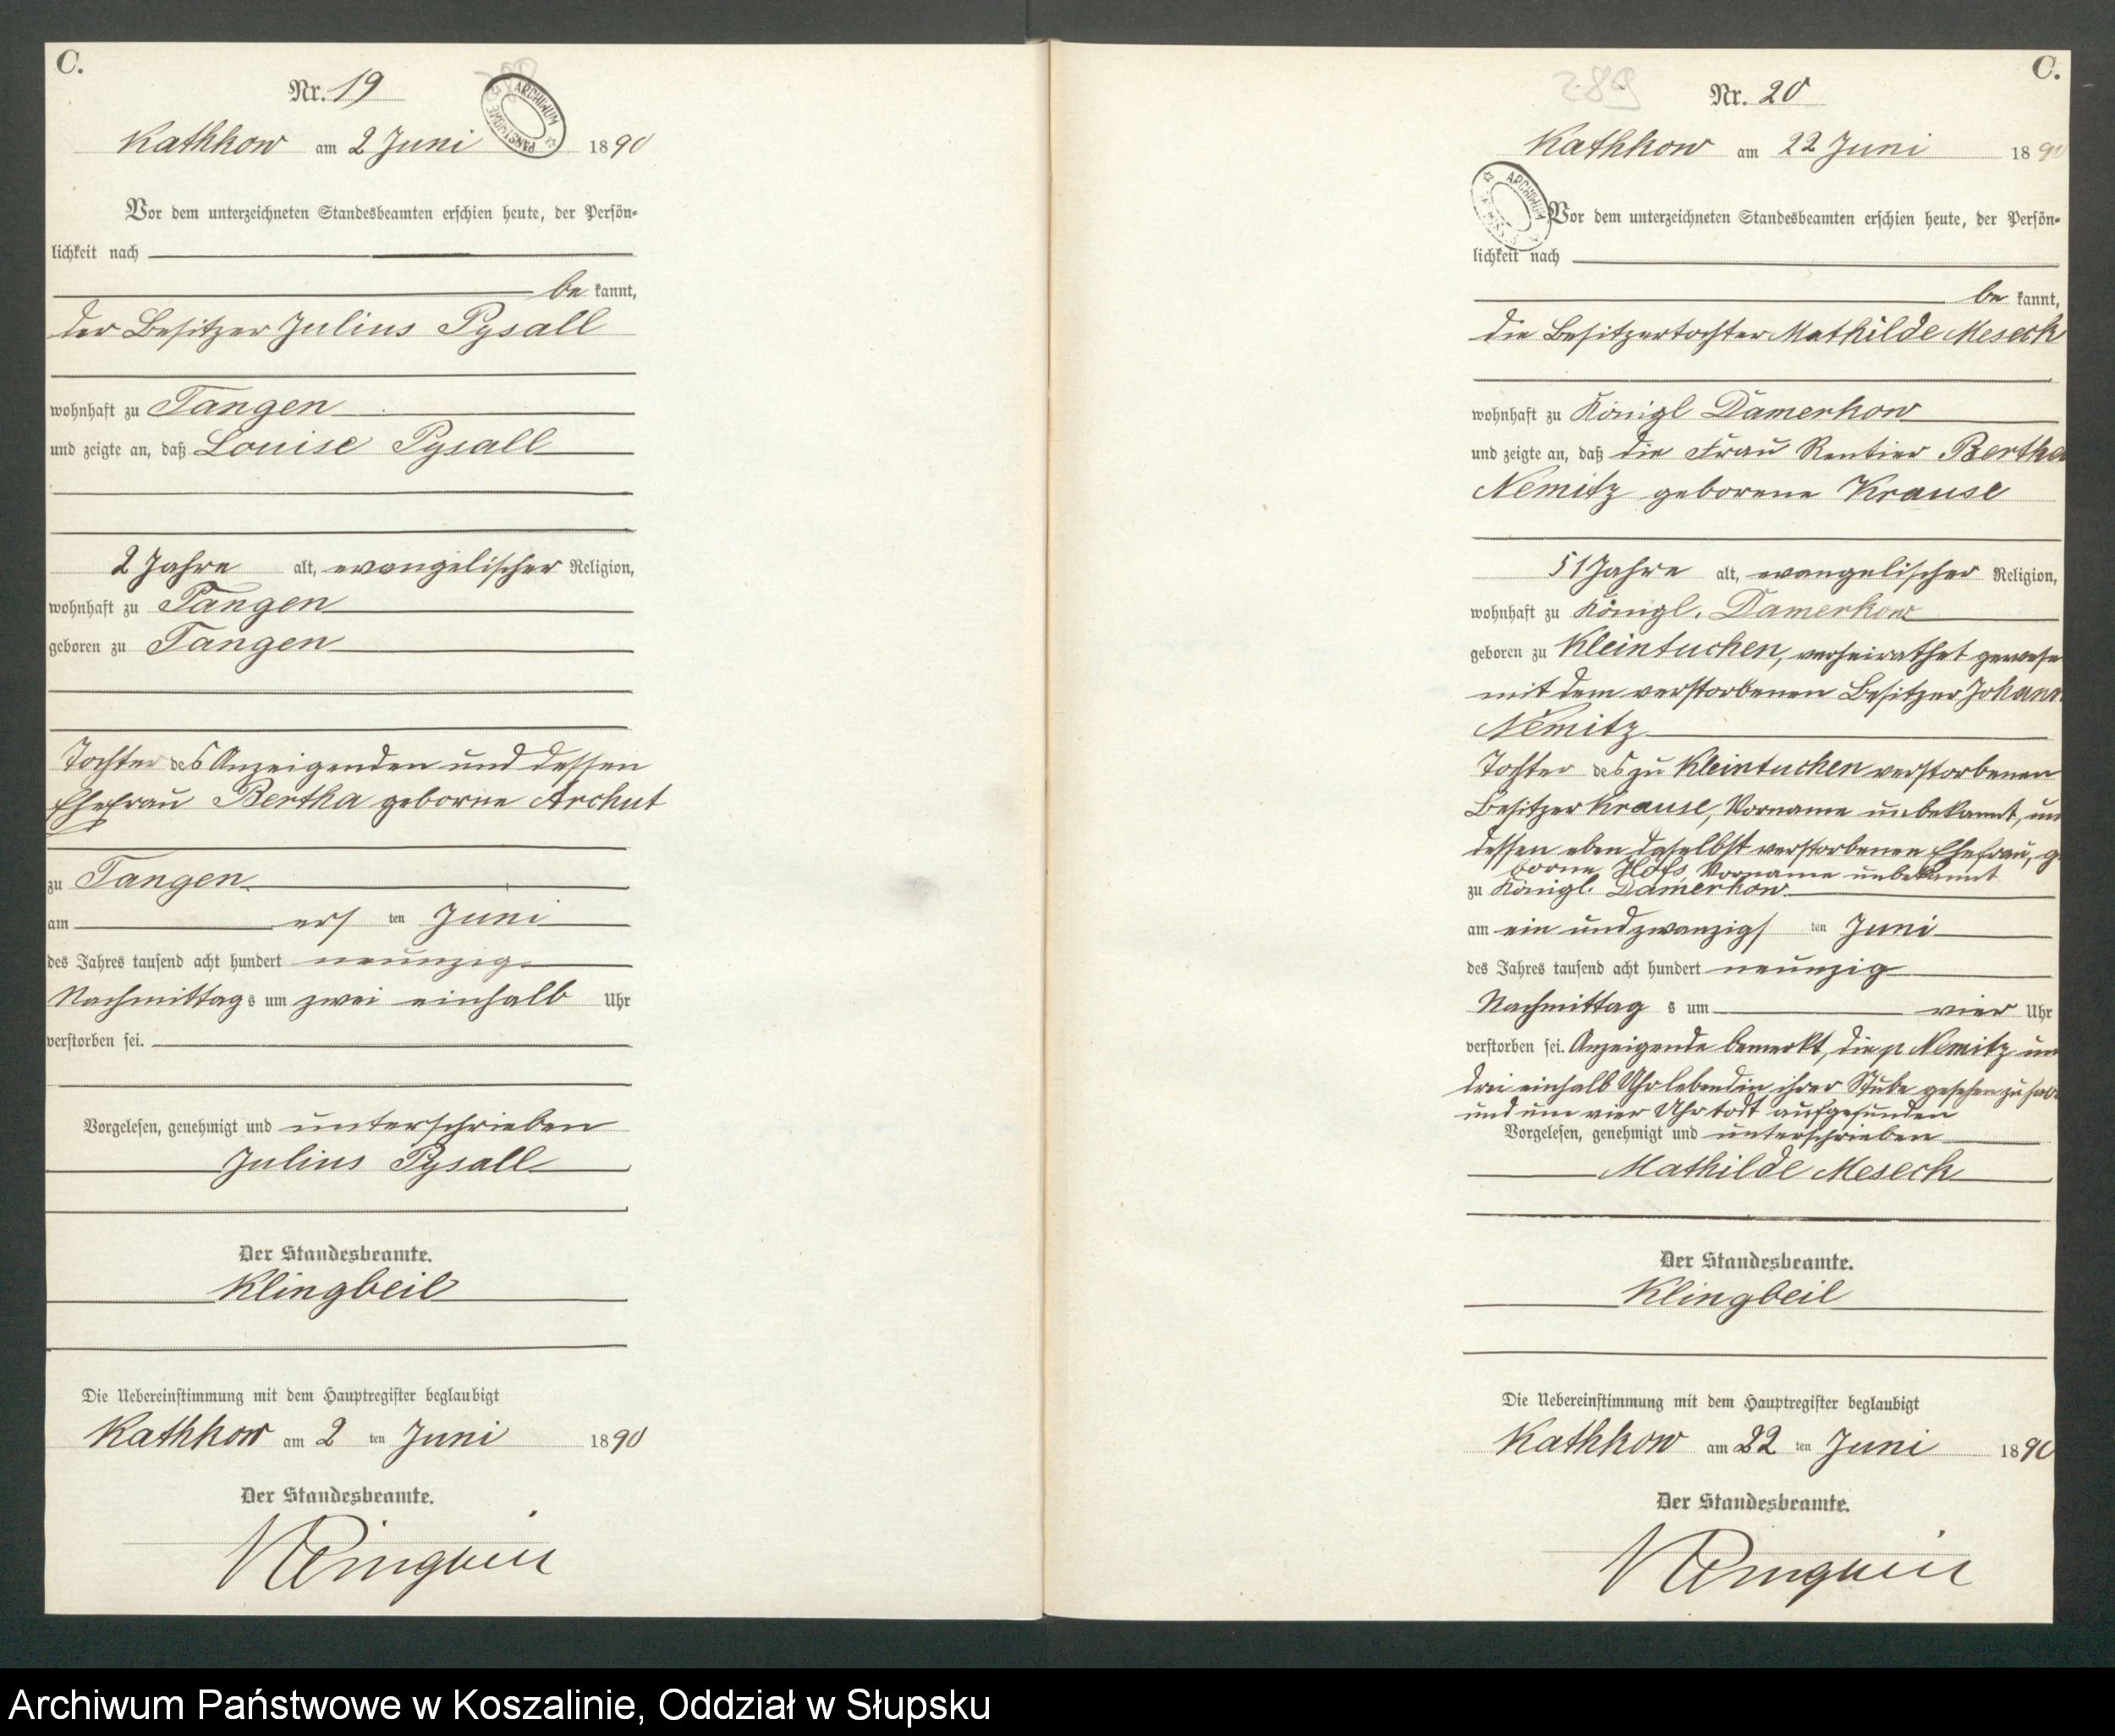 C.
Nr. 19
ARCHIWUM PAŃSTWOWE
Kathkow am 2 Juni 1890
Vor dem unterzeichneten Standesbeamten erschien heute, der Persön-
lichkeit nach
be kannt,
der Besitzer Julius Pysall
wohnhaft zu Tangen
und zeigte an, daß Louise Pysall
2 Jahre alt, evangelischer Religion,
wohnhaft zu Tangen
geboren zu Tangen
Tochter des Anzeigenden und dessen
Ehefrau Bertha geborne Archut
zu Tangen
am ers ten Juni
des Jahres tausend acht hundert neunzig
Nachmittags um zwei einhalb Uhr
verstorben sei.
Vorgelesen, genehmigt und unterschrieben
Julius Pysall
Der Standesbeamte.
Klingbeil
Die Uebereinstimmung mit dem Hauptregister beglaubigt
Kathkow am 2 ten Juni 1890
Der Standesbeamte.
Klingbeil
C.
289
Nr. 20
Kathkow am 22 Juni 1890
ARCHIWUM
Vor dem unterzeichneten Standesbeamten erschien heute, der Persön-
lichkeit nach
be kannt,
die Besitzertochter Mathilde Meseck
wohnhaft zu Königl Damerkow
und zeigte an, daß die Frau Rentier Bertha
Nemitz geborene Krause
51 Jahre alt, evangelischer Religion,
wohnhaft zu Königl. Damerkow
geboren zu Kleintuchen, verheirathet gewese
mit dem verstorbenen Besitzer Johann
Nemitz
Tochter des zu Kleintuchen verstorbenen
Besitzer Krause, Vorname unbekannt, un
dessen eben daselbst verstorbenen Ehefrau, ge
borne Hofs, Vorname unbekannt
zu Königl. Damerkow
am ein und zwanzigs ten Juni
des Jahres tausend acht hundert neunzig
Nachmittag s um vier Uhr
verstorben sei. Anzeigende bemerkt, die p Nemitz um
drei einhalb Uhr lebend in ihrer Stube gesehen zu habe
und um vier Uhr todt aufgefunden
Vorgelesen, genehmigt und unterschrieben
Mathilde Meseck
Der Standesbeamte.
Klingbeil
Die Uebereinstimmung mit dem Hauptregister beglaubigt
Kathkow am 22 ten Juni 1890
Der Standesbeamte.
Klingbeil
Archiwum Państwowe w Koszalinie, Oddział w Słupsku